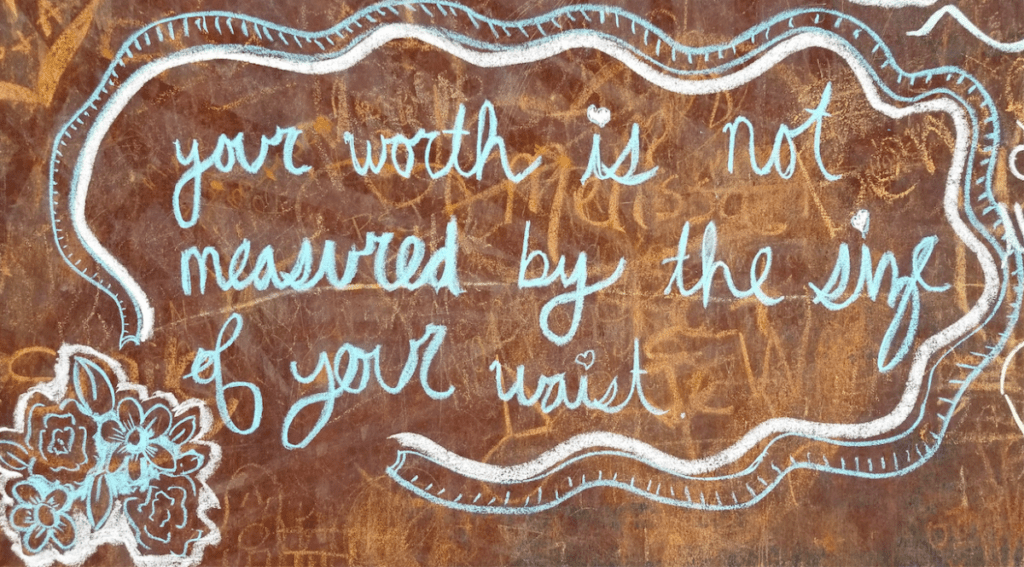 your worth is not
measured by the size
of your waist.
Melissa